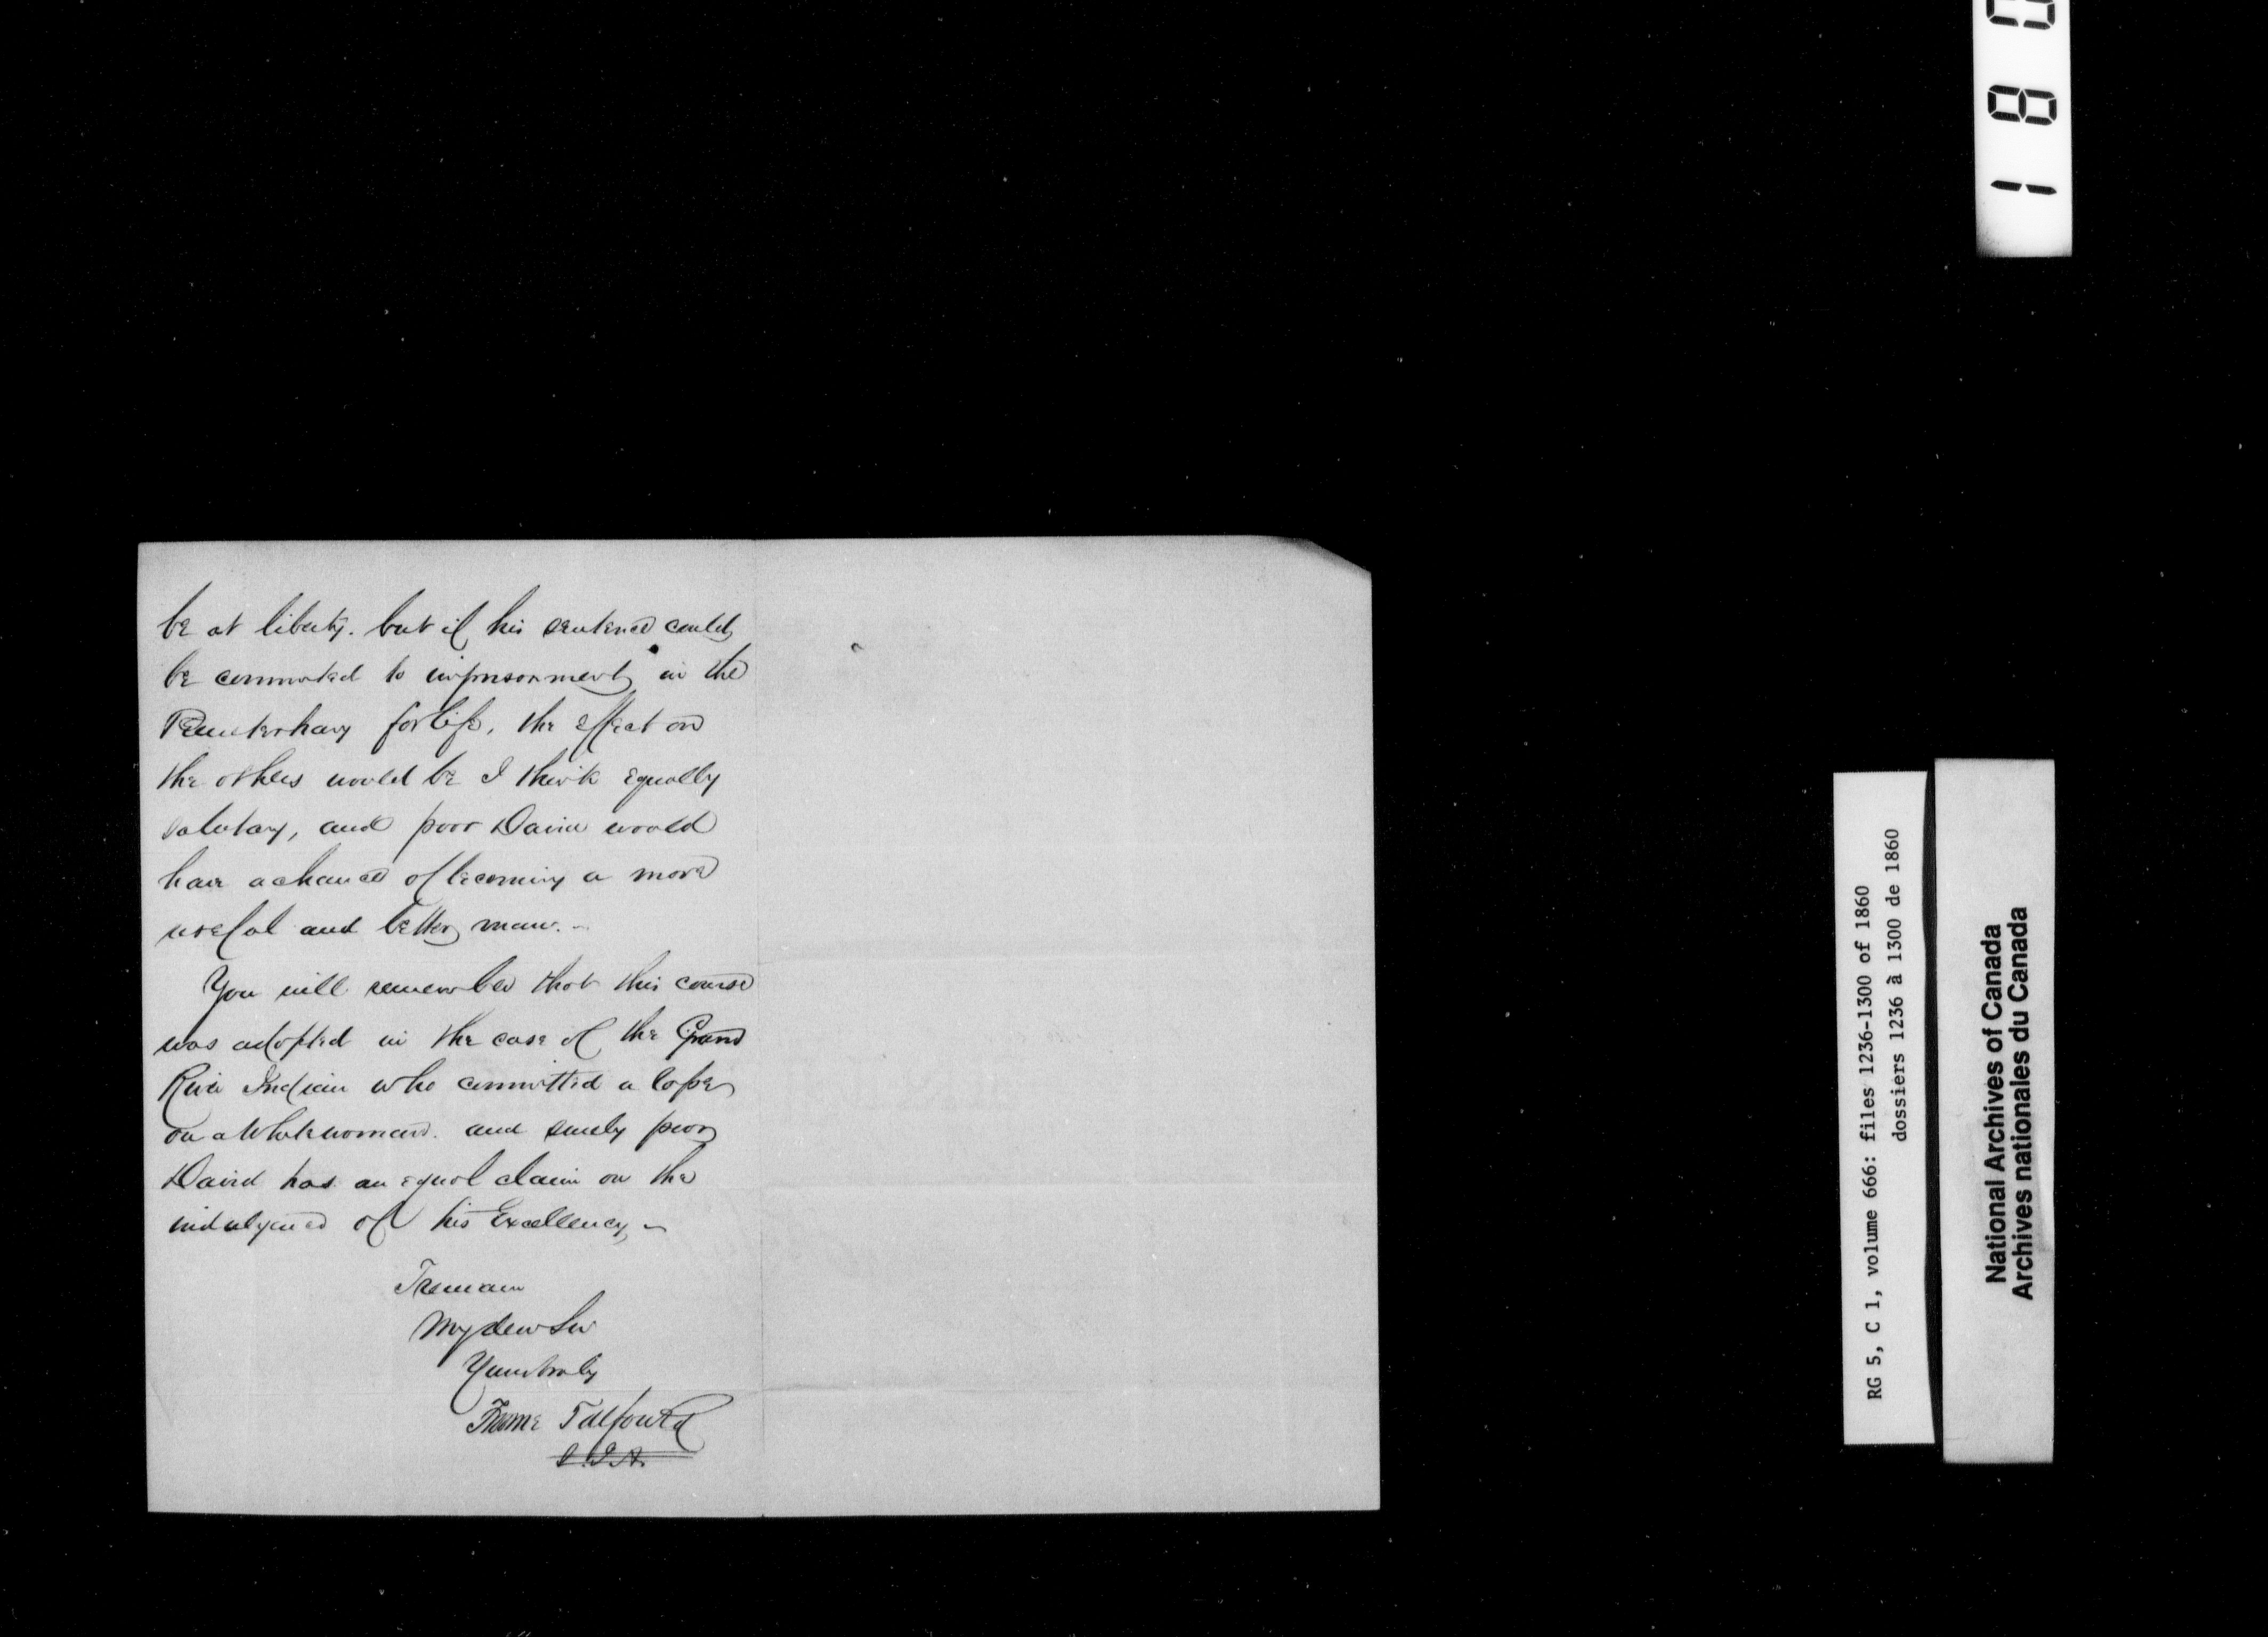 be at liberty. but if his sentence could
be commuted to imprisonment in the
Penitentiary for life, the effect on
the others would be I think equally
salutary, and poor David would
have a chance of becoming a more
useful and better man. -
You will remember that this course
was adopted in the case of the Grand
River Indian who committed a
on a White woman. and surely poor
David has an equal claim on the
indulgence of his Excellency, -
I remain
My dear Sir
Yours truly
Froome Talfourd
180
RG 5, C 1, volume 666: files 1236-1300 of 1860
dossiers 1236 à 1300 de 1860
National Archives of Canada
Archives nationales du Canada